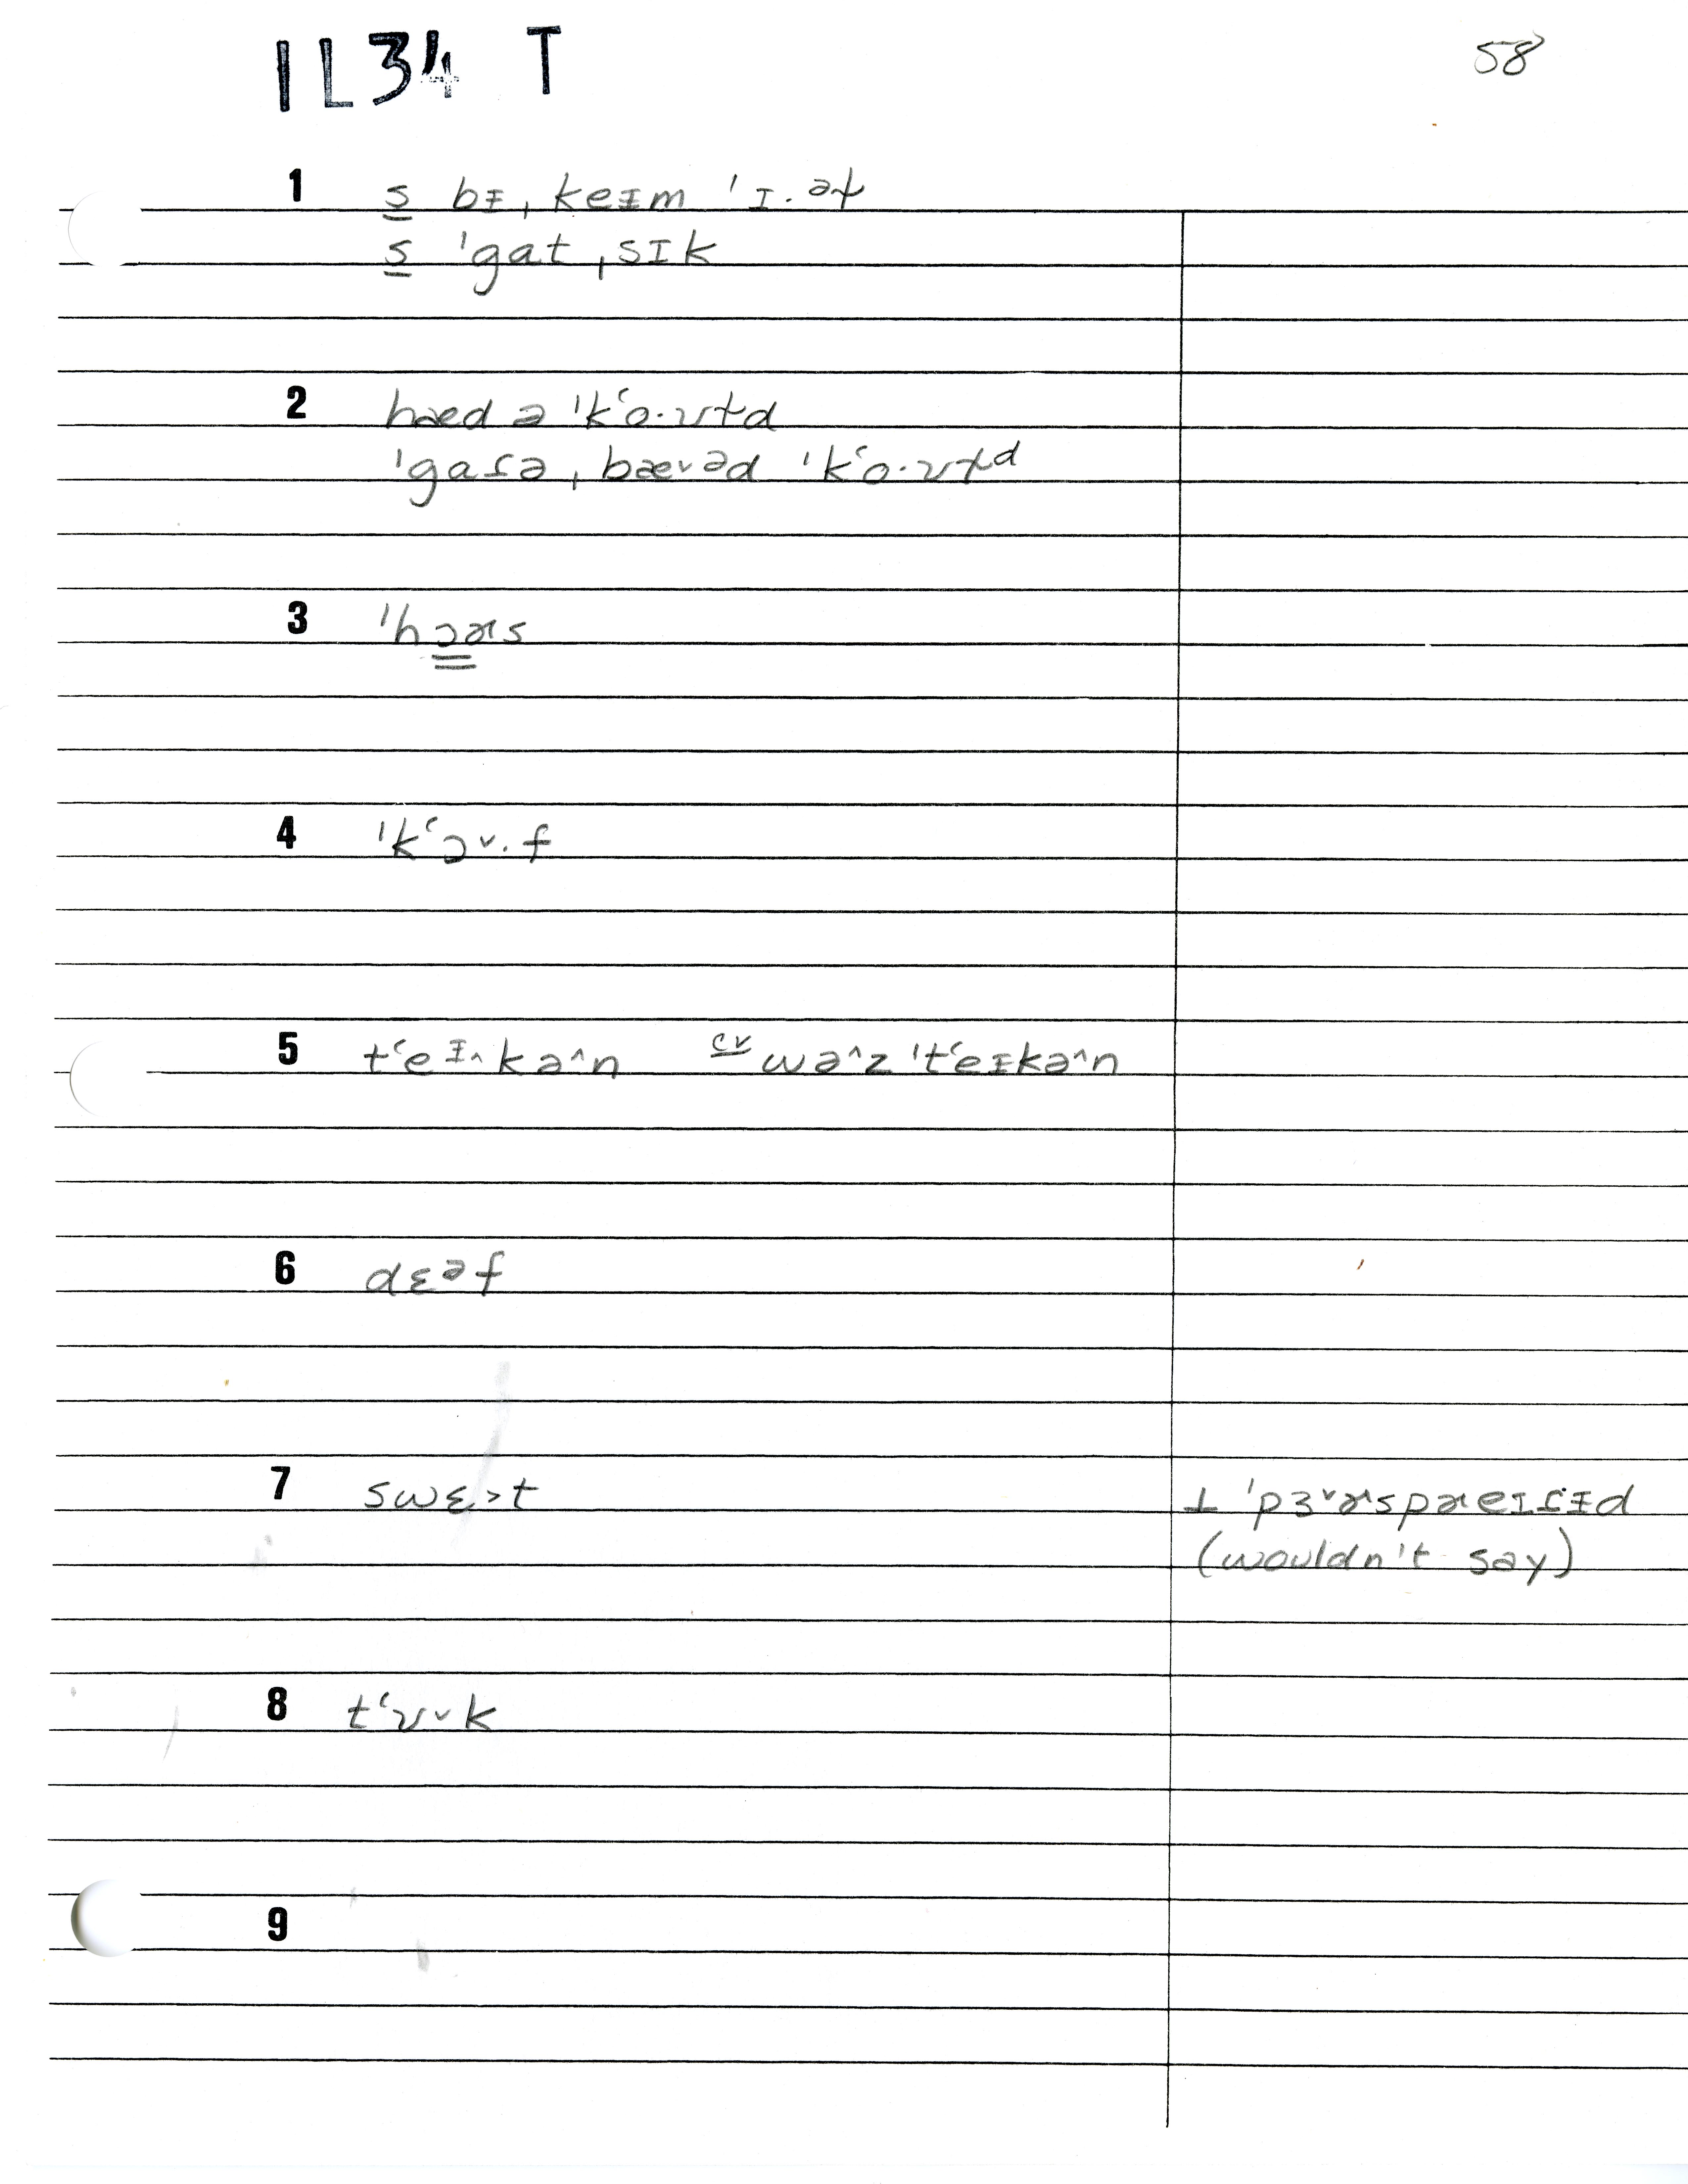 IL34 T
58
1 s̲ bɪ ˌkeɪm ˈɪ·əɫ
s̲ ˈgat ˌsɪk
2 hæd ə ˈkʻo·ʊɫd
ˈgaɾə ˌbæ˅əd ˈkʻo·ʊɫd
3 ˈhɔ̳ɚs
4 ˈkʻɔ˅·f
5 tʻeɪ˄kə˄n cv wə˄z ˈtʻeɪkə˄n
6 dɛəf
7 swɛ˃t ⊥ ˈpɜ˅ɚspɚeɪɾɪd
(wouldn't say)
8 tʻʊ˅k
9